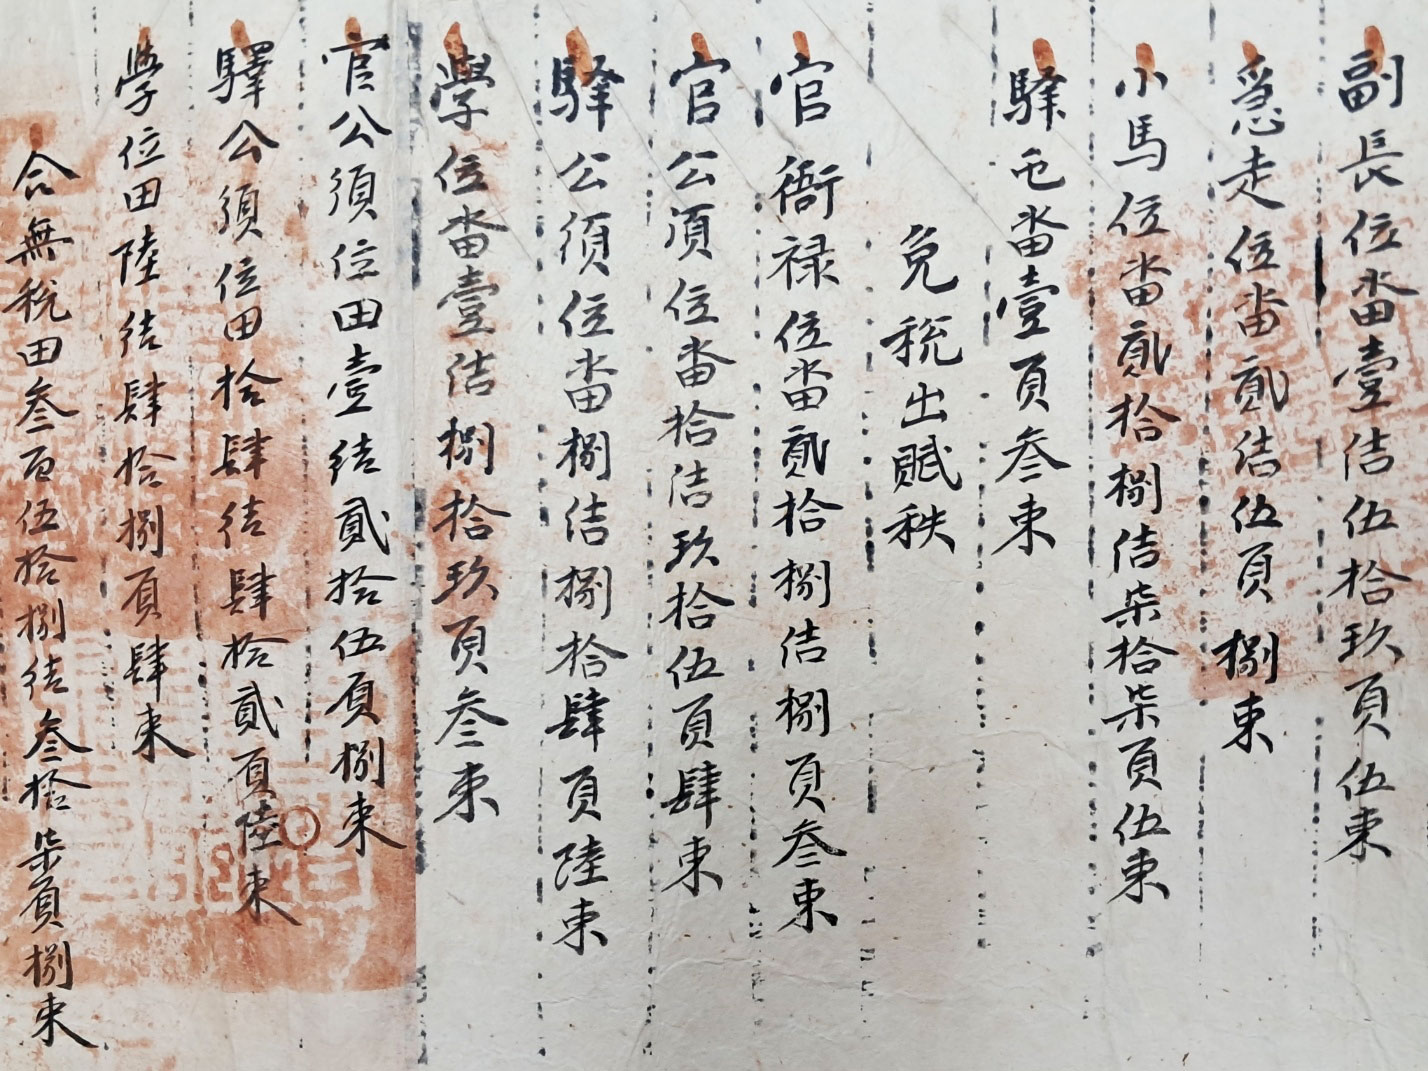 副長位畓壹结伍拾玖負伍束
急走位畓貳结伍負捌束
小馬位畓貳拾捌结柒拾柒負伍束
驛屯畓壹負叁束
免税出賦秩
官衙禄位畓貳拾捌结捌負叁束
官公須位畓拾结玖拾伍負肆束
驛公須位畓捌结捌拾肆負陸束
學位畓壹结捌拾玖負叁束
官公須位田壹结貳拾伍負捌束
驛公須位田拾肆结肆拾貳負陸束
學位田陸结肆拾捌負肆束
合無税田叁百伍拾捌结叁拾柒負捌束